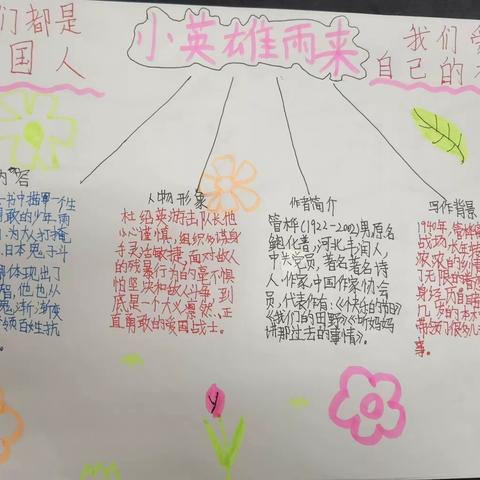 们都是
国人
小英雄雨来
我们爱
自己的
内容
书中描写一个生
勇敢的少年雨
为大人打掩
日本鬼子斗
具体现出了
智,他也从
鬼,渐渐成
带领百姓抗
人物形象
杜绍英游击队长他
小心谨慎,组织分得身
手灵活敏捷,面对敌人
的残暴行为的毫不惧
怕坚决和敌人斗争,到
底是一个大义凛然、正
直勇敢的爱国战士。
作者简介
管桦(1922-2002)男原名
鲍化普,河北丰润人,
中共党员,著名著名诗
人,作家,中国作家协会
员,代表作有:《快乐的节日》
《我们的田野》《听妈妈
讲那过去的事情》。
写作背景
1940年,管桦
战场
浓浓的
了无限的
身经历
几岁的
带领
等。